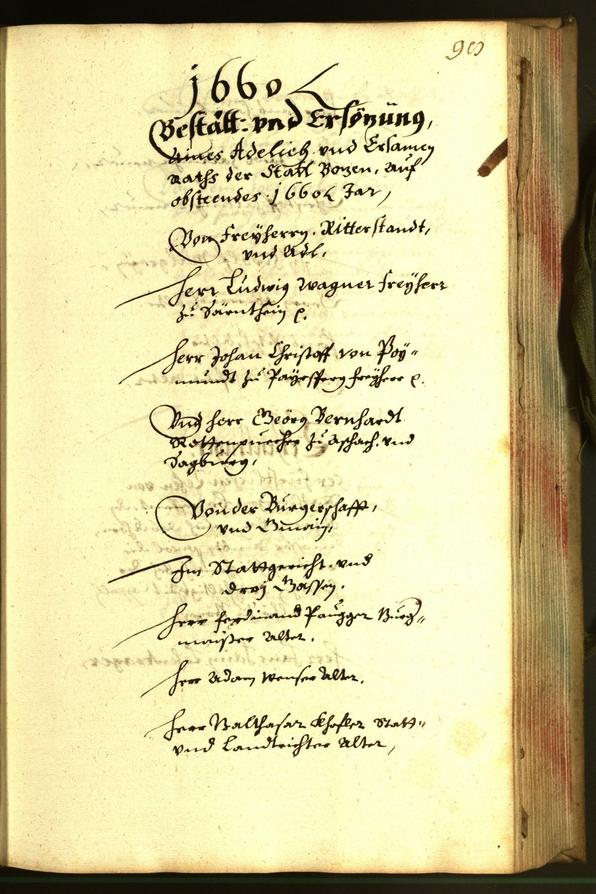 90
1660
Bestätt: vnd Ersönung,
Aines Adelich. vnd Ersamen
Raths der Statt Bozen, auf
obsteendes 1660 Jar,
Von Freyherrn. Ritterstandt,
vnd Adl,
Herr Ludwig Wagner Freyherr
zu Särnthein
Herr Johan Christoff von Poÿ-
mundt zu Paÿrsperg freyherr
Vnd Herr Geörg Bernhardt
Rottenpuecher zu Aschach, vnd
Sagburg,
Von der Burgerschafft,
vnd Gmain,
Im Stattgericht, vnd
dreÿ Gassen.
Herr Ferdinand Paugger Burg-
maister Alter,
Herr Adam Wenser Alter,
Herr Balthasar Khofler Statt-
vnd Landrichter Alter,